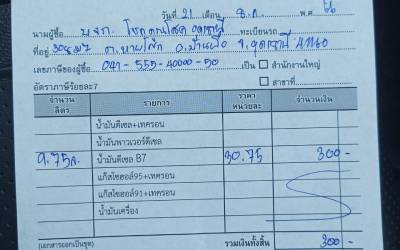 วันที่ 21 เดือน ธ.ค. พ.ศ. 66
นามผู้ซื้อ หจก. โชคคูณโชค อุดรธานี ทะเบียนรถ
ที่อยู่ 308 ม.7 ต.หายโศก อ.บ้านผือ จ.อุดรธานี 41160
เลขภาษีของผู้ซื้อ 041-555-40000-50 เป็น สำนักงานใหญ่
อัตราภาษีร้อยละ7 สาขาที่
จำนวนลิตร รายการ ราคาหน่วยละ จำนวนเงิน
น้ำมันดีเซล+เทครอน
น้ำมันพาวเวอร์ดีเซล
9.75 ล. น้ำมันดีเซล B7 30.75 300-
แก๊สโซฮอล์95+เทครอน
แก๊สโซฮอล์91+เทครอน
น้ำมันเครื่อง
(เอกสารออกเป็นชุด) รวมเงินทั้งสิ้น 300-